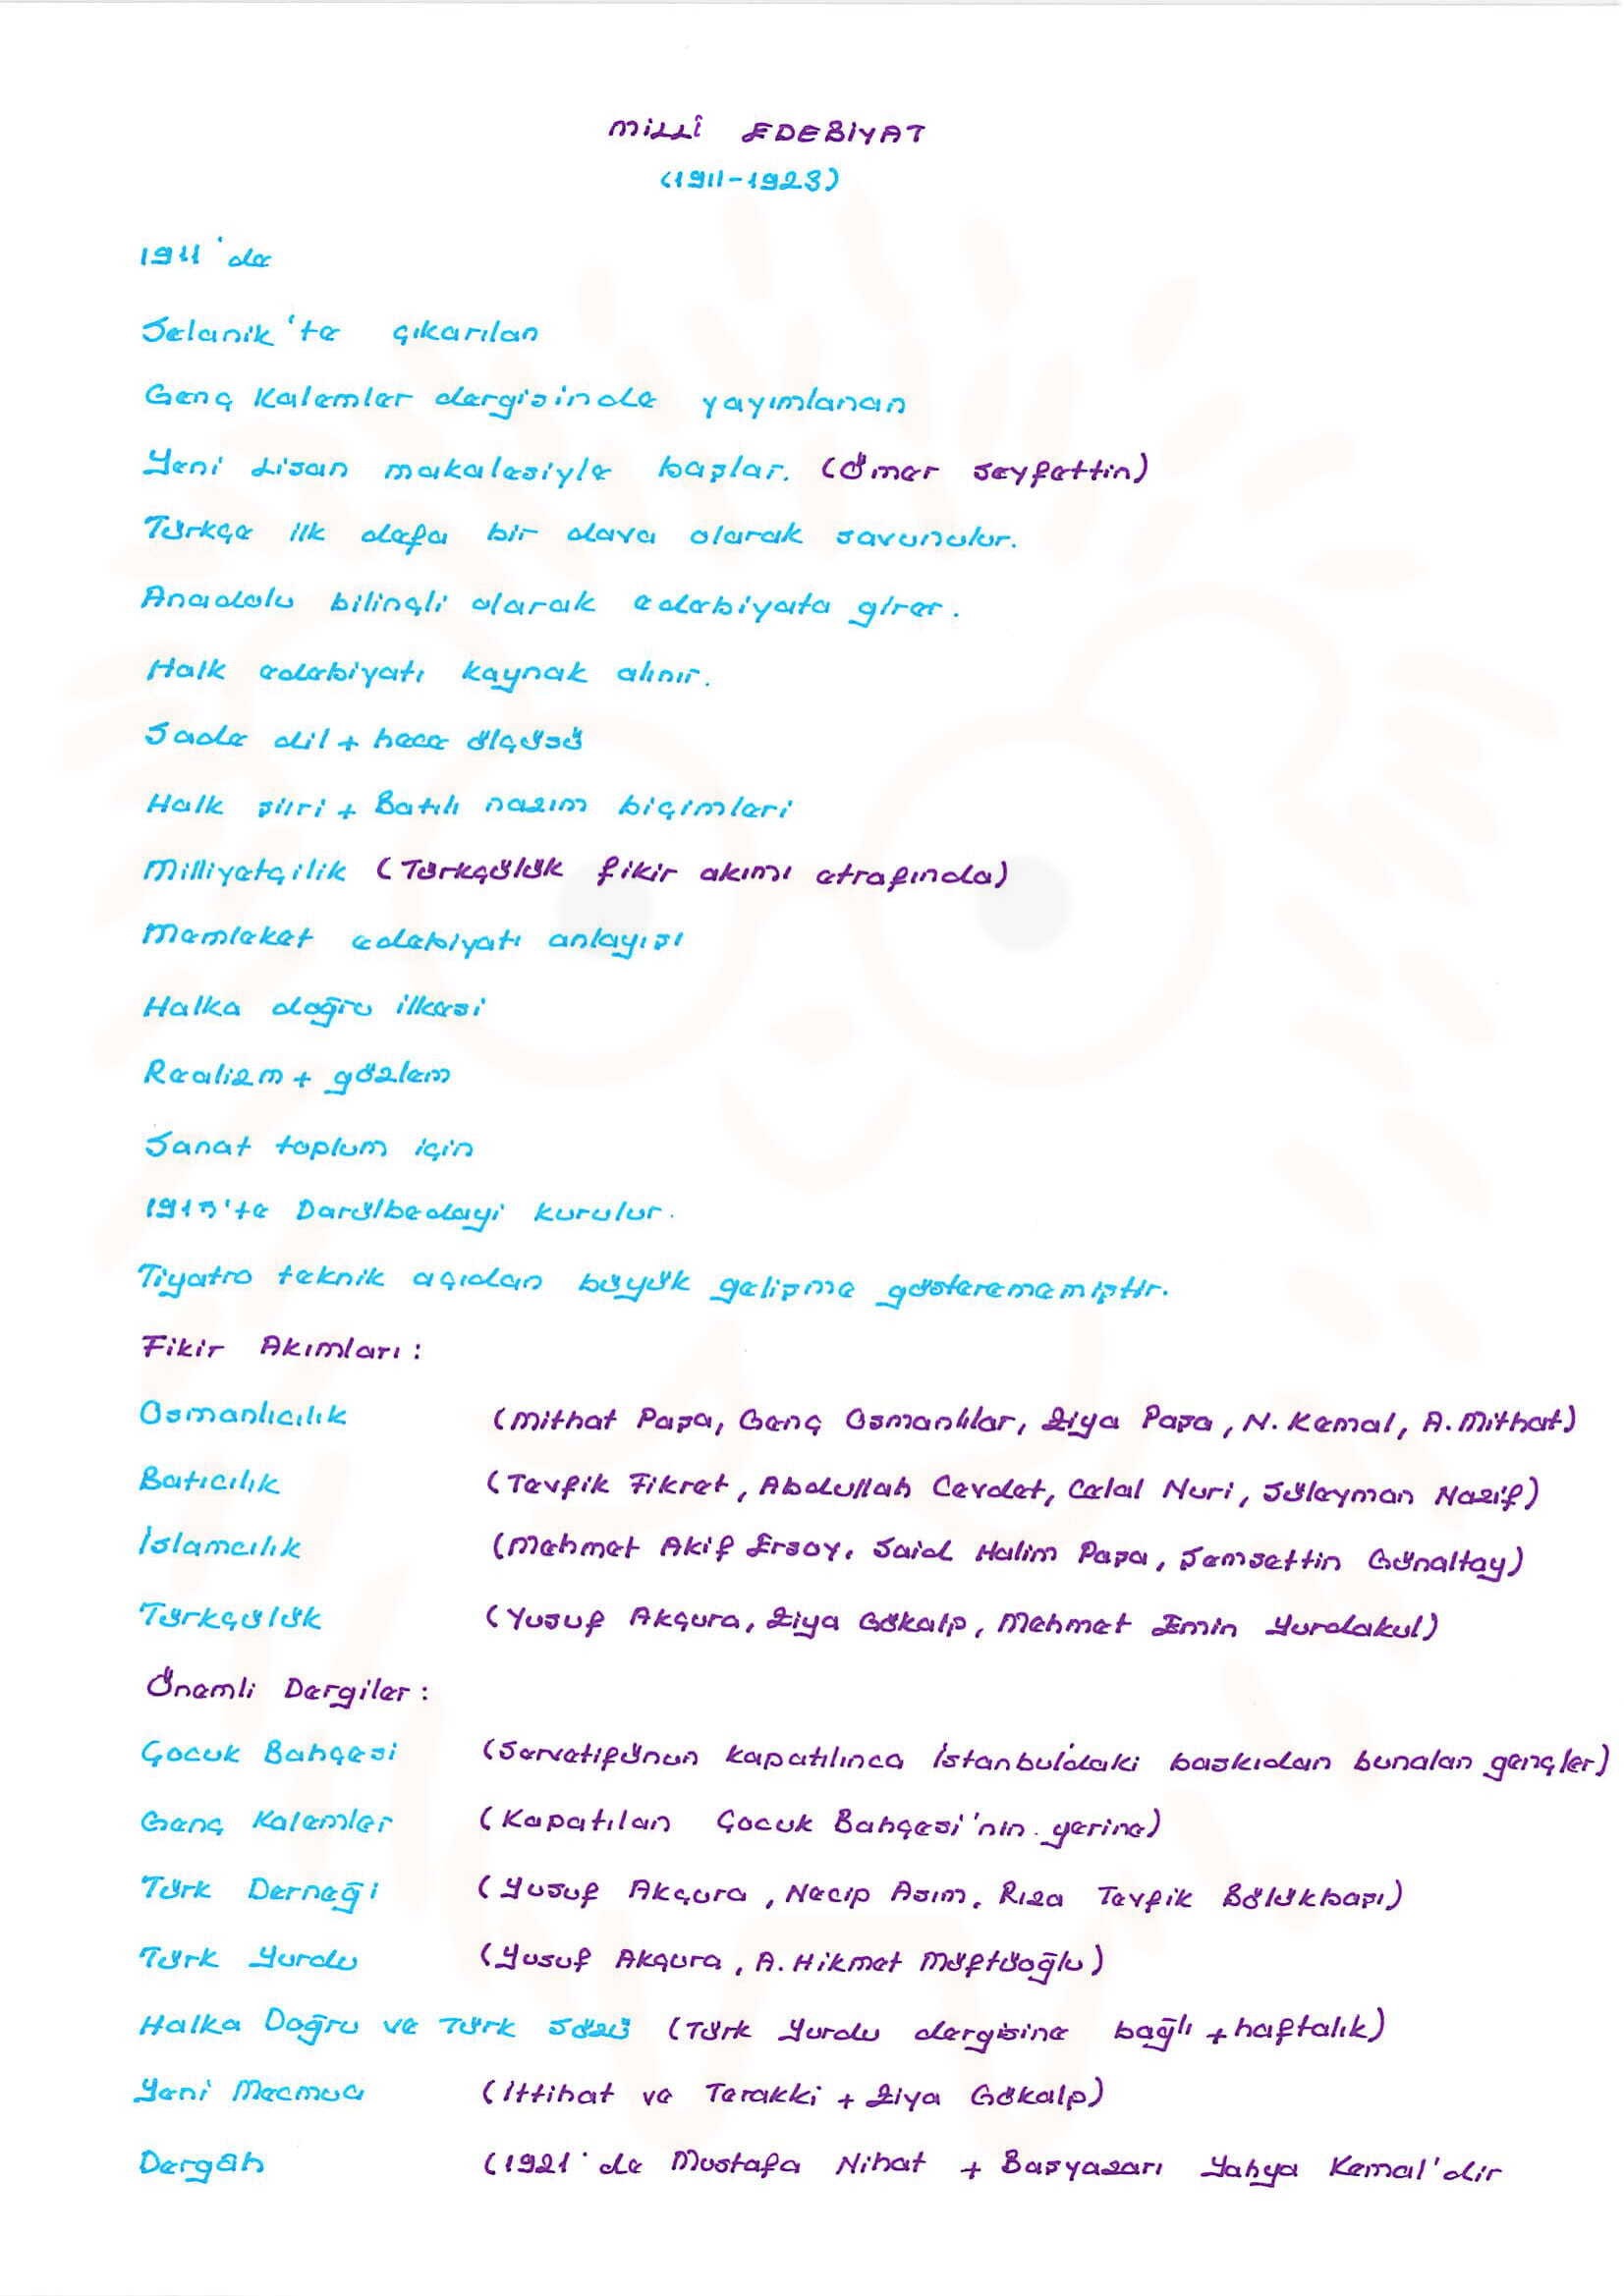 MİLLÎ EDEBİYAT
(1911-1923)
1911'de
Selanik'te çıkarılan
Genç Kalemler dergisinde yayımlanan
Yeni Lisan makalesiyle başlar. (Ömer Seyfettin)
Türkçe ilk defa bir dava olarak savunulur.
Anadolu bilinçli olarak edebiyata girer.
Halk edebiyatı kaynak alınır.
Sade dil + hece ölçüsü
Halk şiiri + Batılı nazım biçimleri
Milliyetçilik (Türkçülük fikir akımı etrafında)
Memleket edebiyatı anlayışı
Halka doğru ilkesi
Realizm + gözlem
Sanat toplum için
Darülbedayi kurulur.
Tiyatro teknik açıdan büyük gelişme gösterememiştir.
Fikir Akımları:
Osmanlıcılık (Mithat Paşa, Genç Osmanlılar, Ziya Paşa, N. Kemal, A. Mithat)
Batıcılık (Tevfik Fikret, Abdullah Cevdet, Celal Nuri, Süleyman Nazif)
İslamcılık (Mehmet Akif Ersoy, Said Halim Paşa, Şemsettin Günaltay)
Türkçülük (Yusuf Akçura, Ziya Gökalp, Mehmet Emin Yurdakul)
Önemli Dergiler:
Çocuk Bahçesi (Servetifünun kapatılınca İstanbul'daki baskıdan bunalan gençler)
Genç Kalemler (Kapatılan Çocuk Bahçesi'nin yerine)
Türk Derneği (Yusuf Akçura, Necip Asım, Rıza Tevfik Bölükbaşı)
Türk Yurdu (Yusuf Akçura, A. Hikmet Müftüoğlu)
Halka Doğru ve Türk Sözü (Türk Yurdu dergisine bağlı + haftalık)
Yeni Mecmua (İttihat ve Terakki + Ziya Gökalp)
Dergâh (1921'de Mustafa Nihat + Başyazarı Yahya Kemal'dir